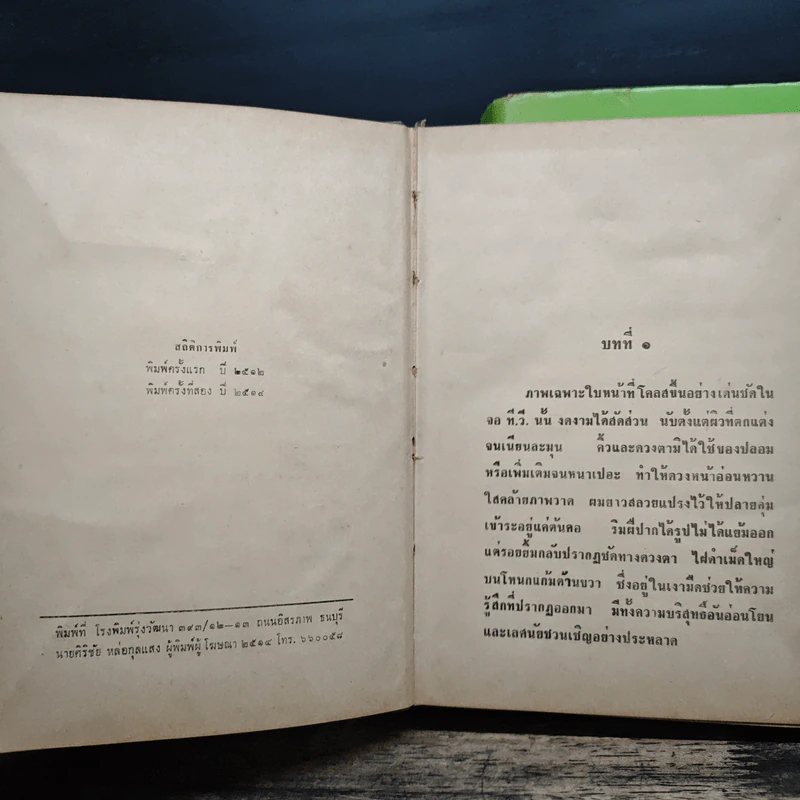 สถิติการพิมพ์
พิมพ์ครั้งแรก ปี ๒๕๑๒
พิมพ์ครั้งที่สอง ปี ๒๕๑๔
พิมพ์ที่ โรงพิมพ์รุ่งวัฒนา ๓๙๓/๑๒—๑๓ ถนนอิสรภาพ ธนบุรี
นายศิริชัย หล่อกุลแสง ผู้พิมพ์ผู้โฆษณา ๒๕๑๔ โทร. ๖๖๐๐๕๘
บทที่ ๑
ภาพเฉพาะใบหน้าที่โคลสขึ้นอย่างเด่นชัดใน
จอ ที.วี. นั้น งดงามได้สัดส่วน นับตั้งแต่ผิวที่ตกแต่ง
จนเนียนละมุน คิ้วและดวงตามิได้ใช้ของปลอม
หรือเพิ่มเติมจนหนาเปอะ ทำให้ดวงหน้าอ่อนหวาน
ใสคล้ายภาพวาด ผมยาวสลวยแปรงไว้ให้ปลายคุ่ม
เข้าระอยู่แค่ต้นคอ ริมฝีปากได้รูปไม่ได้แย้มออก
แต่รอยยิ้มกลับปรากฏชัดทางดวงตา ไฝดำเม็ดใหญ่
บนโหนกแก้มด้านขวา ซึ่งอยู่ในเงามืดช่วยให้ความ
รู้สึกที่ปรากฏออกมา มีทั้งความบริสุทธิ์อันอ่อนโยน
และเลศนัยชวนเชิญอย่างประหลาด